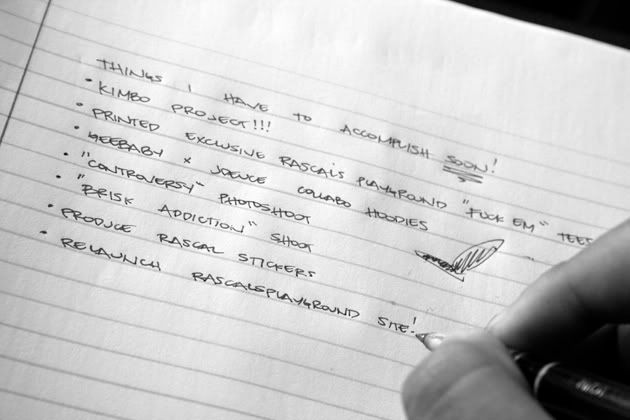 THINGS I HAVE TO ACCOMPLISH SOON!
• KIMBO PROJECT!!!
• PRINTED EXCLUSIVE RASCALS PLAYGROUND "FUCK EM" TEES
• YEEBABY x JOENCE COLLABO HOODIES
• "CONTROVERSY" PHOTOSHOOT
• "BRISK ADDICTION" SHOOT
• PRODUCE RASCAL STICKERS
• RELAUNCH RASCALSPLAYGROUND SITE!